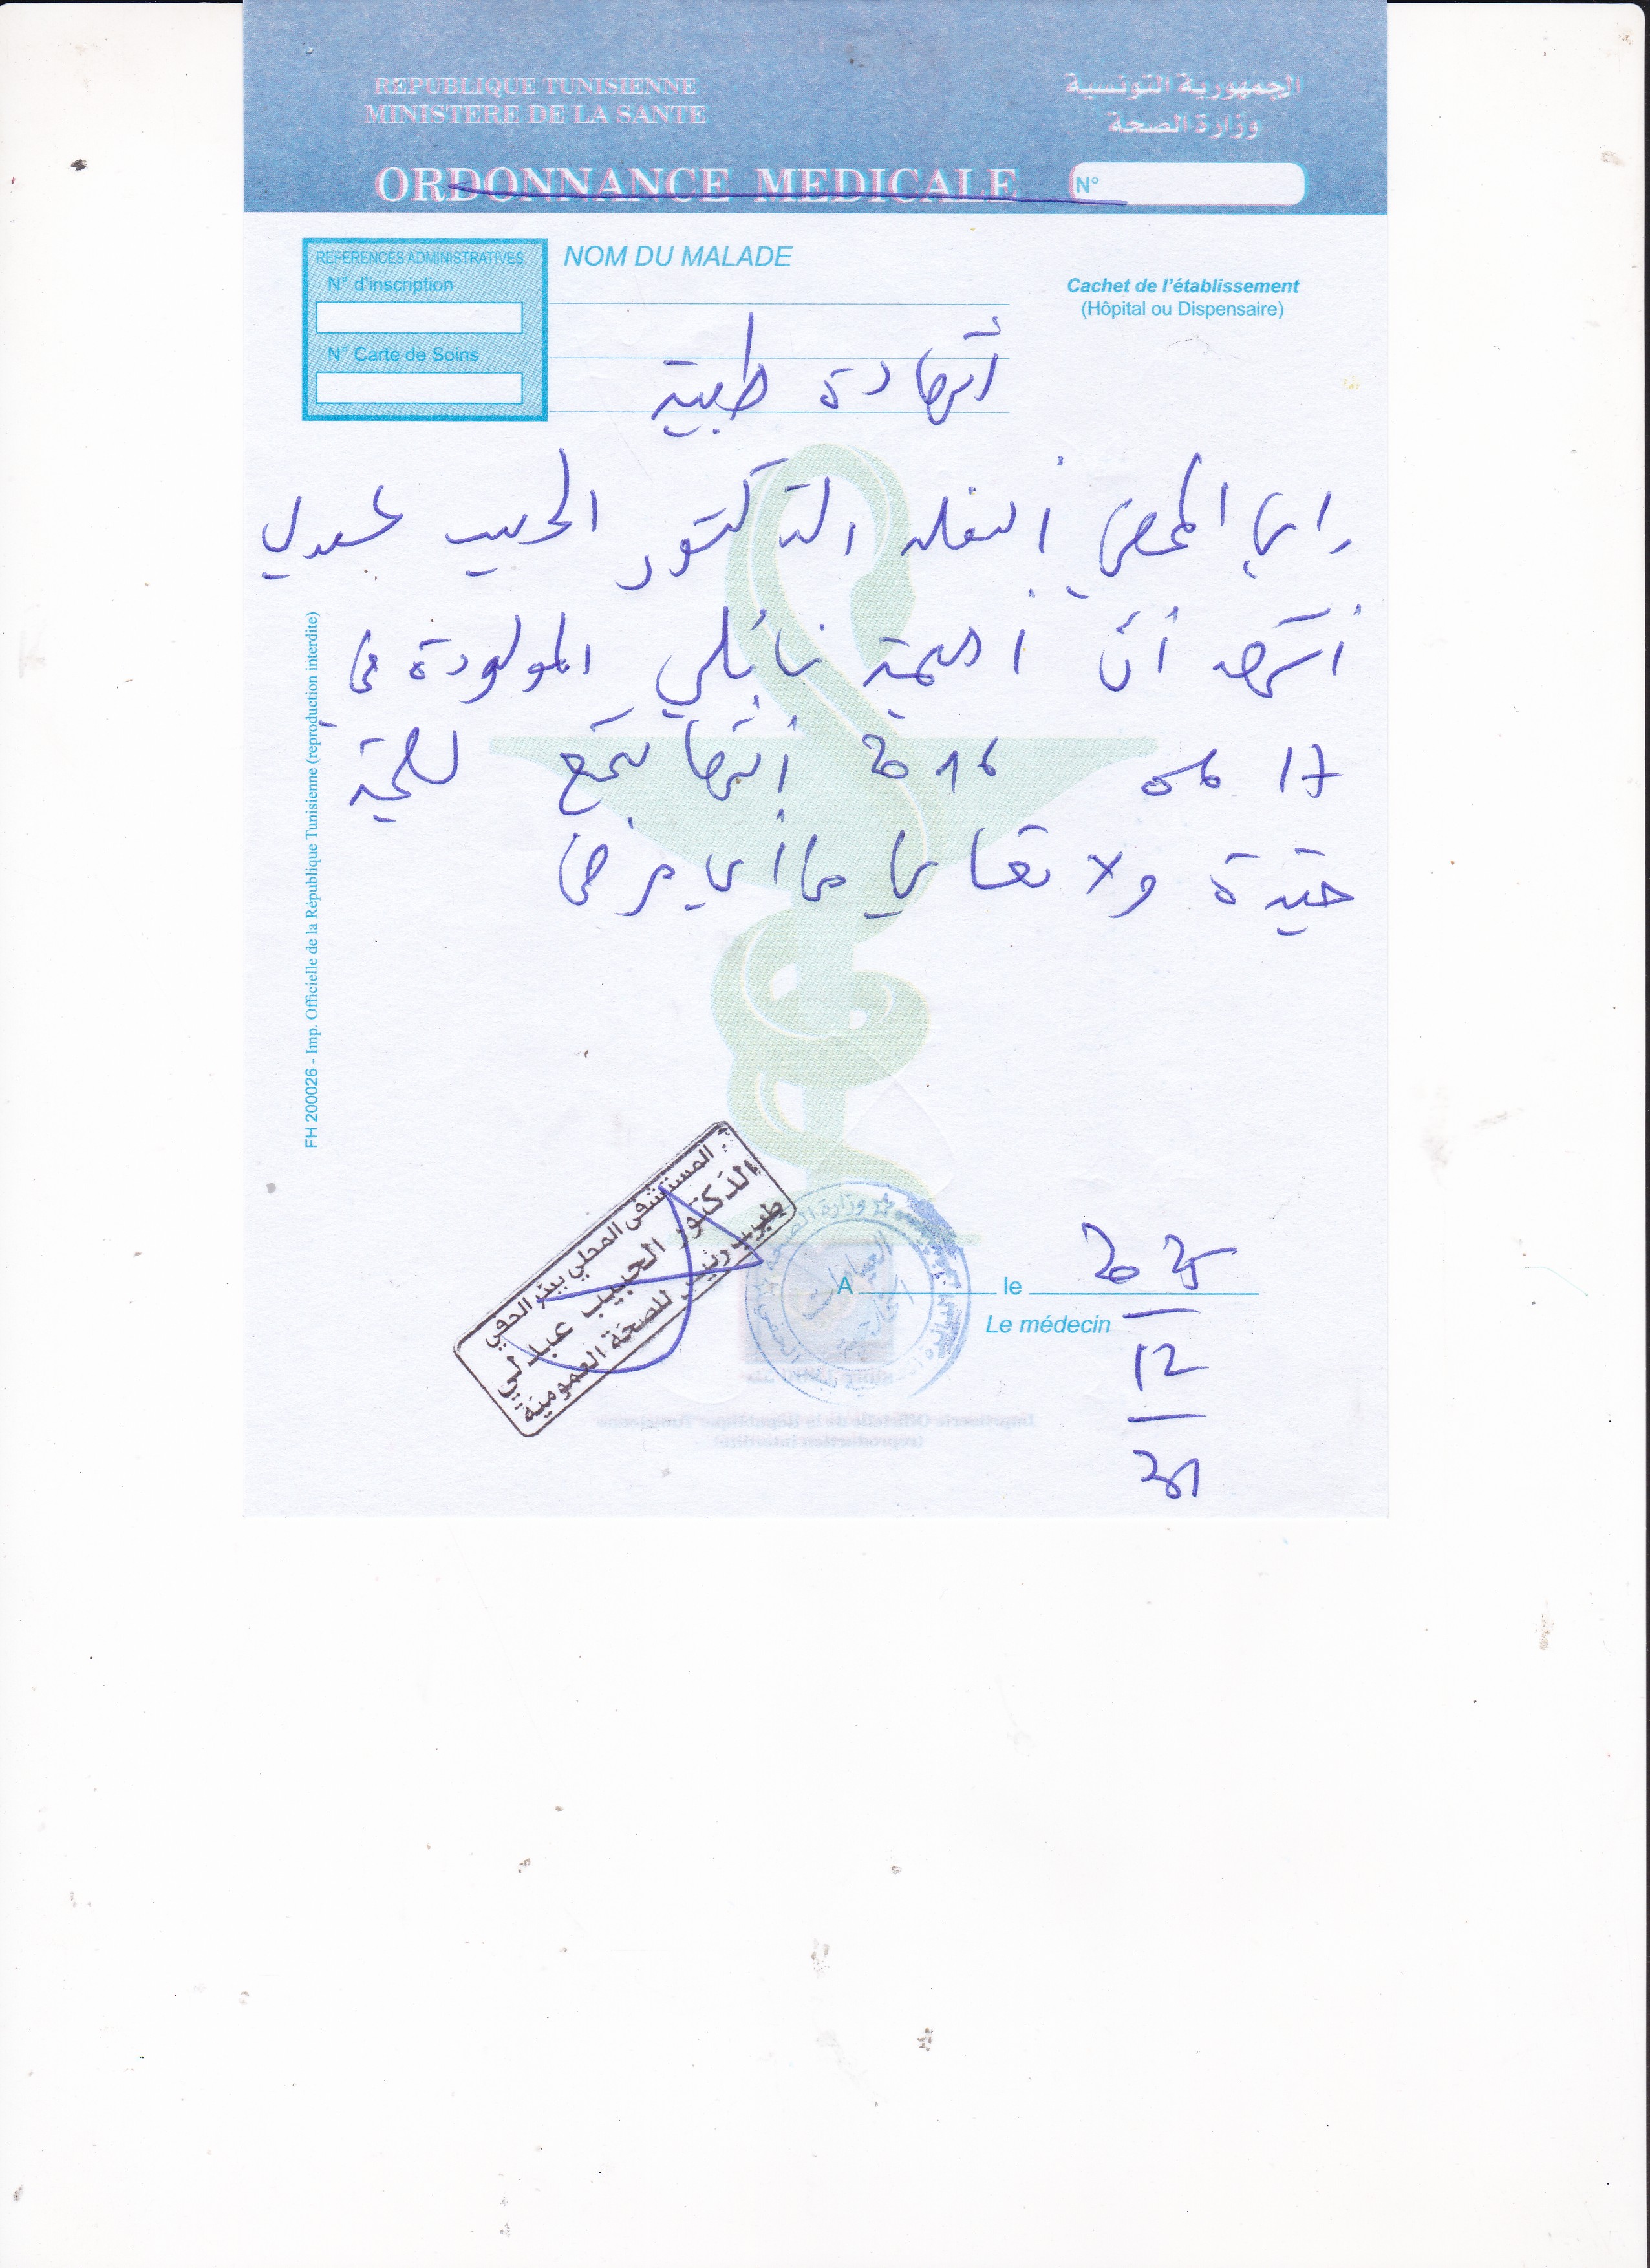 REPUBLIQUE TUNISIENNE
MINISTERE DE LA SANTE
الجمهورية التونسية
وزارة الصحة
ORDONNANCE MEDICALE
N°
REFERENCES ADMINISTRATIVES
N° d'inscription
N° Carte de Soins
NOM DU MALADE
Cachet de l'établissement
(Hôpital ou Dispensaire)
شهادة طبية
إني الممضي أسفله الدكتور الحبيب عبدلي
أشهد أن نايلي المولودة في
17 06 2016 أنها تتمتع بصحة
جيدة ولا تعاني من أي مرض
FH 200026 - Imp. Officielle de la République Tunisienne (reproduction interdite)
المستشفى المحلي ببئر الحفي
الدكتور الحبيب عبدلي
طبيب رئيس للصحة العمومية
وزارة الصحة
A
le
2025
Le médecin
12
31
Imprimerie Officielle de la République Tunisienne
(reproduction interdite)